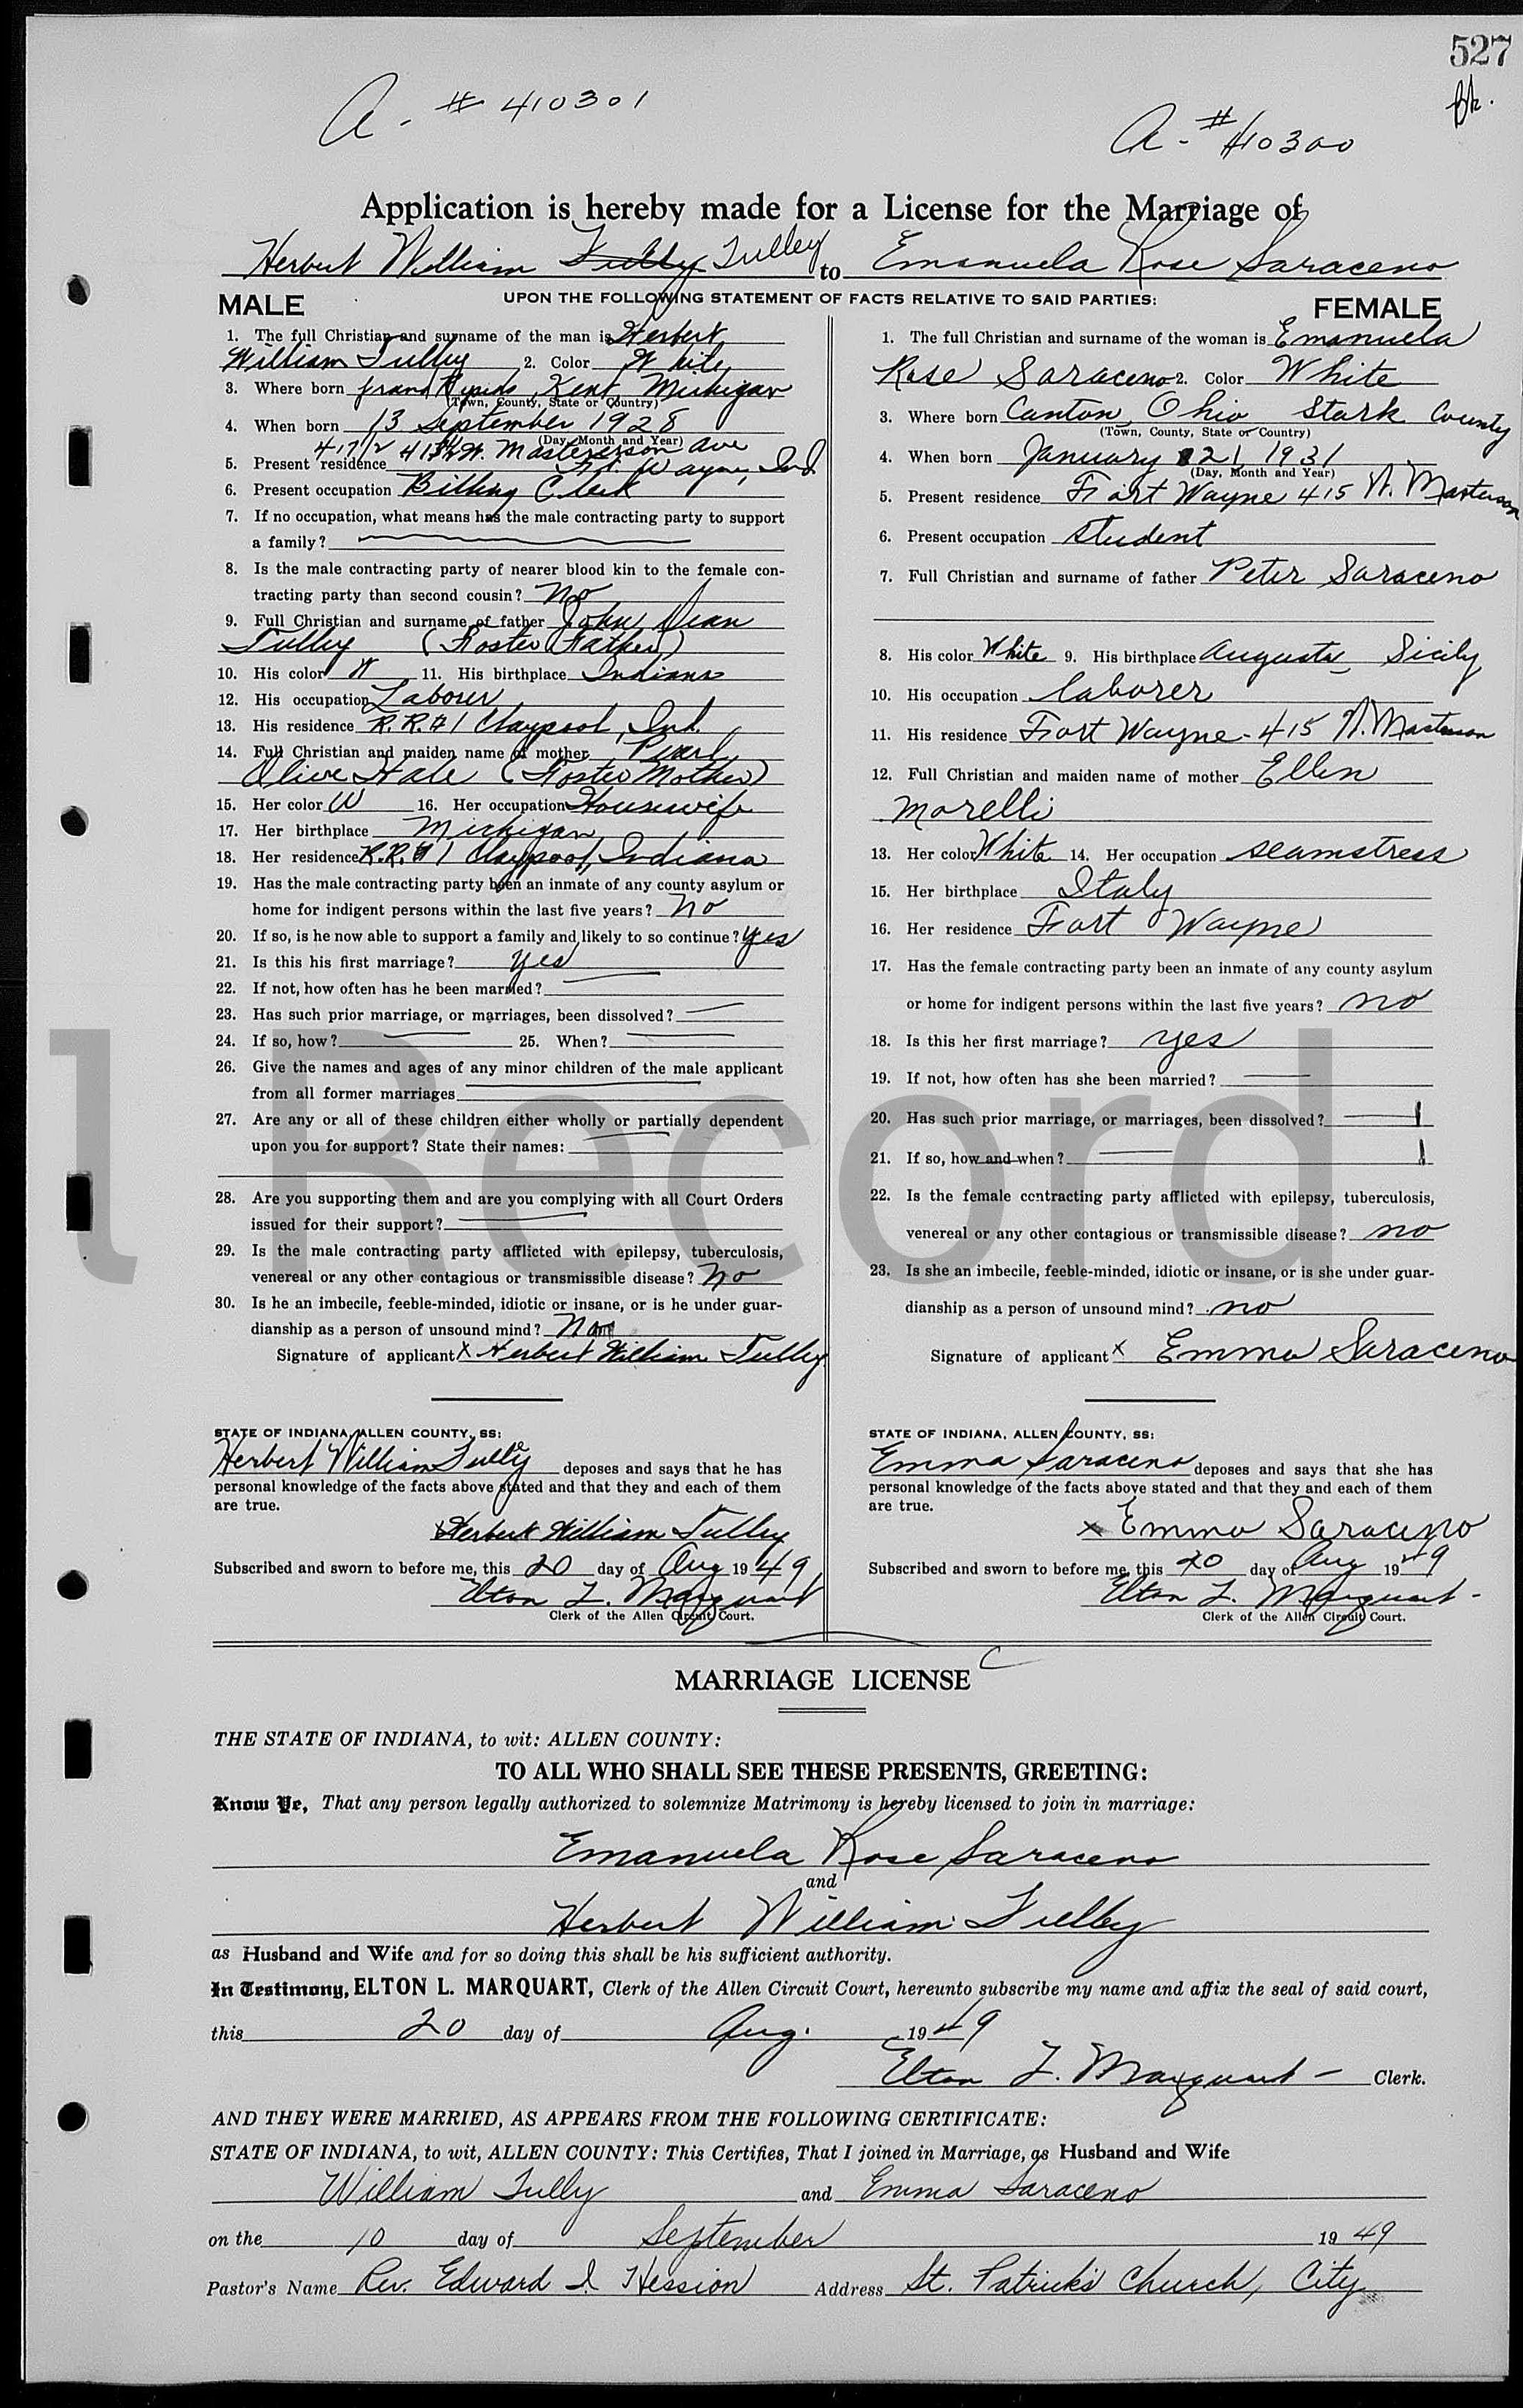 527
A - # 410301
A - # 410300
Application is hereby made for a License for the Marriage of
Herbert William Tulley to Emanuela Rose Saraceno
UPON THE FOLLOWING STATEMENT OF FACTS RELATIVE TO SAID PARTIES:
MALE
1. The full Christian and surname of the man is Herbert
William Tulley 2. Color White
3. Where born Grand Rapids, Kent, Michigan
(Town, County, State or Country)
4. When born 13 September 1928
(Day, Month and Year)
417 1/2 W. Masterson Ave
5. Present residence Ft. Wayne, Ind.
6. Present occupation Billing Clerk
7. If no occupation, what means has the male contracting party to support
a family?
8. Is the male contracting party of nearer blood kin to the female con-
tracting party than second cousin? No
9. Full Christian and surname of father John Dean
Tulley (Foster Father)
10. His color W 11. His birthplace Indiana
12. His occupation Laborer
13. His residence R.R.#1 Claypool, Ind.
14. Full Christian and maiden name of mother Pearl
Olive Hale (Foster Mother)
15. Her color W 16. Her occupation Housewife
17. Her birthplace Michigan
18. Her residence R.R.#1 Claypool, Indiana
19. Has the male contracting party been an inmate of any county asylum or
home for indigent persons within the last five years? No
20. If so, is he now able to support a family and likely to so continue? Yes
21. Is this his first marriage? Yes
22. If not, how often has he been married?
23. Has such prior marriage, or marriages, been dissolved?
24. If so, how? 25. When?
26. Give the names and ages of any minor children of the male applicant
from all former marriages
27. Are any or all of these children either wholly or partially dependent
upon you for support? State their names:
28. Are you supporting them and are you complying with all Court Orders
issued for their support?
29. Is the male contracting party afflicted with epilepsy, tuberculosis,
venereal or any other contagious or transmissible disease? No
30. Is he an imbecile, feeble-minded, idiotic or insane, or is he under guar-
dianship as a person of unsound mind? No
Signature of applicant X Herbert William Tulley
STATE OF INDIANA, ALLEN COUNTY, SS:
Herbert William Tulley deposes and says that he has
personal knowledge of the facts above stated and that they and each of them
are true.
X Herbert William Tulley
Subscribed and sworn to before me, this 20 day of Aug 1949
Elton L. Marquart
Clerk of the Allen Circuit Court.
FEMALE
1. The full Christian and surname of the woman is Emanuela
Rose Saraceno 2. Color White
3. Where born Canton, Ohio Stark County
(Town, County, State or Country)
4. When born January 21 1931
(Day, Month and Year)
5. Present residence Fort Wayne 415 W. Masterson
6. Present occupation Student
7. Full Christian and surname of father Peter Saraceno
8. His color White 9. His birthplace Augusta, Sicily
10. His occupation laborer
11. His residence Fort Wayne - 415 W. Masterson
12. Full Christian and maiden name of mother Ellen
Morelli
13. Her color White 14. Her occupation seamstress
15. Her birthplace Italy
16. Her residence Fort Wayne
17. Has the female contracting party been an inmate of any county asylum
or home for indigent persons within the last five years? no
18. Is this her first marriage? yes
19. If not, how often has she been married?
20. Has such prior marriage, or marriages, been dissolved?
21. If so, how and when?
22. Is the female contracting party afflicted with epilepsy, tuberculosis,
venereal or any other contagious or transmissible disease? no
23. Is she an imbecile, feeble-minded, idiotic or insane, or is she under guar-
dianship as a person of unsound mind? no
Signature of applicant X Emma Saraceno
STATE OF INDIANA, ALLEN COUNTY, SS:
Emma Saraceno deposes and says that she has
personal knowledge of the facts above stated and that they and each of them
are true.
X Emma Saraceno
Subscribed and sworn to before me, this 20 day of Aug 1949
Elton L. Marquart
Clerk of the Allen Circuit Court.
l Record
MARRIAGE LICENSE
THE STATE OF INDIANA, to wit: ALLEN COUNTY:
TO ALL WHO SHALL SEE THESE PRESENTS, GREETING:
Know Ye, That any person legally authorized to solemnize Matrimony is hereby licensed to join in marriage:
Emanuela Rose Saraceno
and
Herbert William Tulley
as Husband and Wife and for so doing this shall be his sufficient authority.
In Testimony, ELTON L. MARQUART, Clerk of the Allen Circuit Court, hereunto subscribe my name and affix the seal of said court,
this 20 day of Aug. 1949
Elton L. Marquart - Clerk.
AND THEY WERE MARRIED, AS APPEARS FROM THE FOLLOWING CERTIFICATE:
STATE OF INDIANA, to wit, ALLEN COUNTY: This Certifies, That I joined in Marriage, as Husband and Wife
William Tully and Emma Saraceno
on the 10 day of September 1949
Pastor's Name Rev. Edward I Hession Address St. Patrick's Church, City